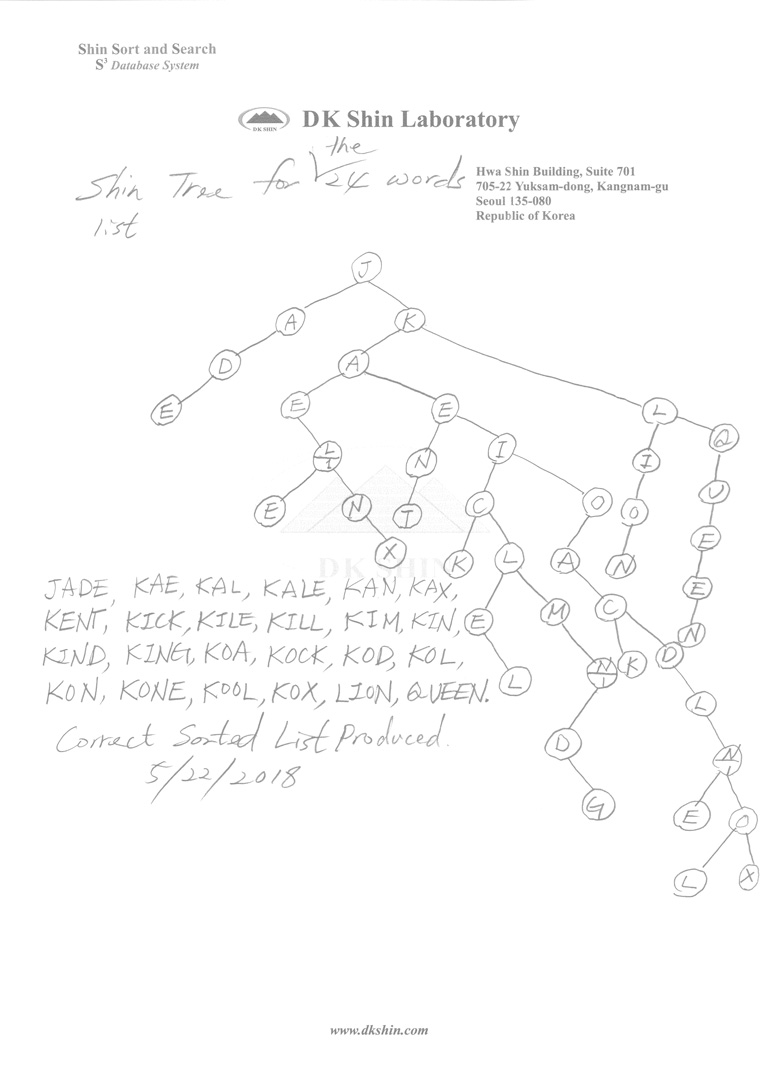 Shin Sort and Search
S³ Database System
DK SHIN
DK Shin Laboratory
Hwa Shin Building, Suite 701
705-22 Yuksam-dong, Kangnam-gu
Seoul 135-080
Republic of Korea
Shin Tree for the 24 words
list
J
A K
D A
E E E L Q
L 1 N I I
E N T C O O U
X K L A N E
DK SHIN
M C E
E N
L N 1 K D
L
D N 1
G E O
L X
JADE, KAE, KAL, KALE, KAN, KAX,
KENT, KICK, KILE, KILL, KIM, KIN,
KIND, KING, KOA, KOCK, KOD, KOL,
KON, KONE, KOOL, KOX, LION, QUEEN.
Correct Sorted List Produced.
5/22/2018
www.dkshin.com